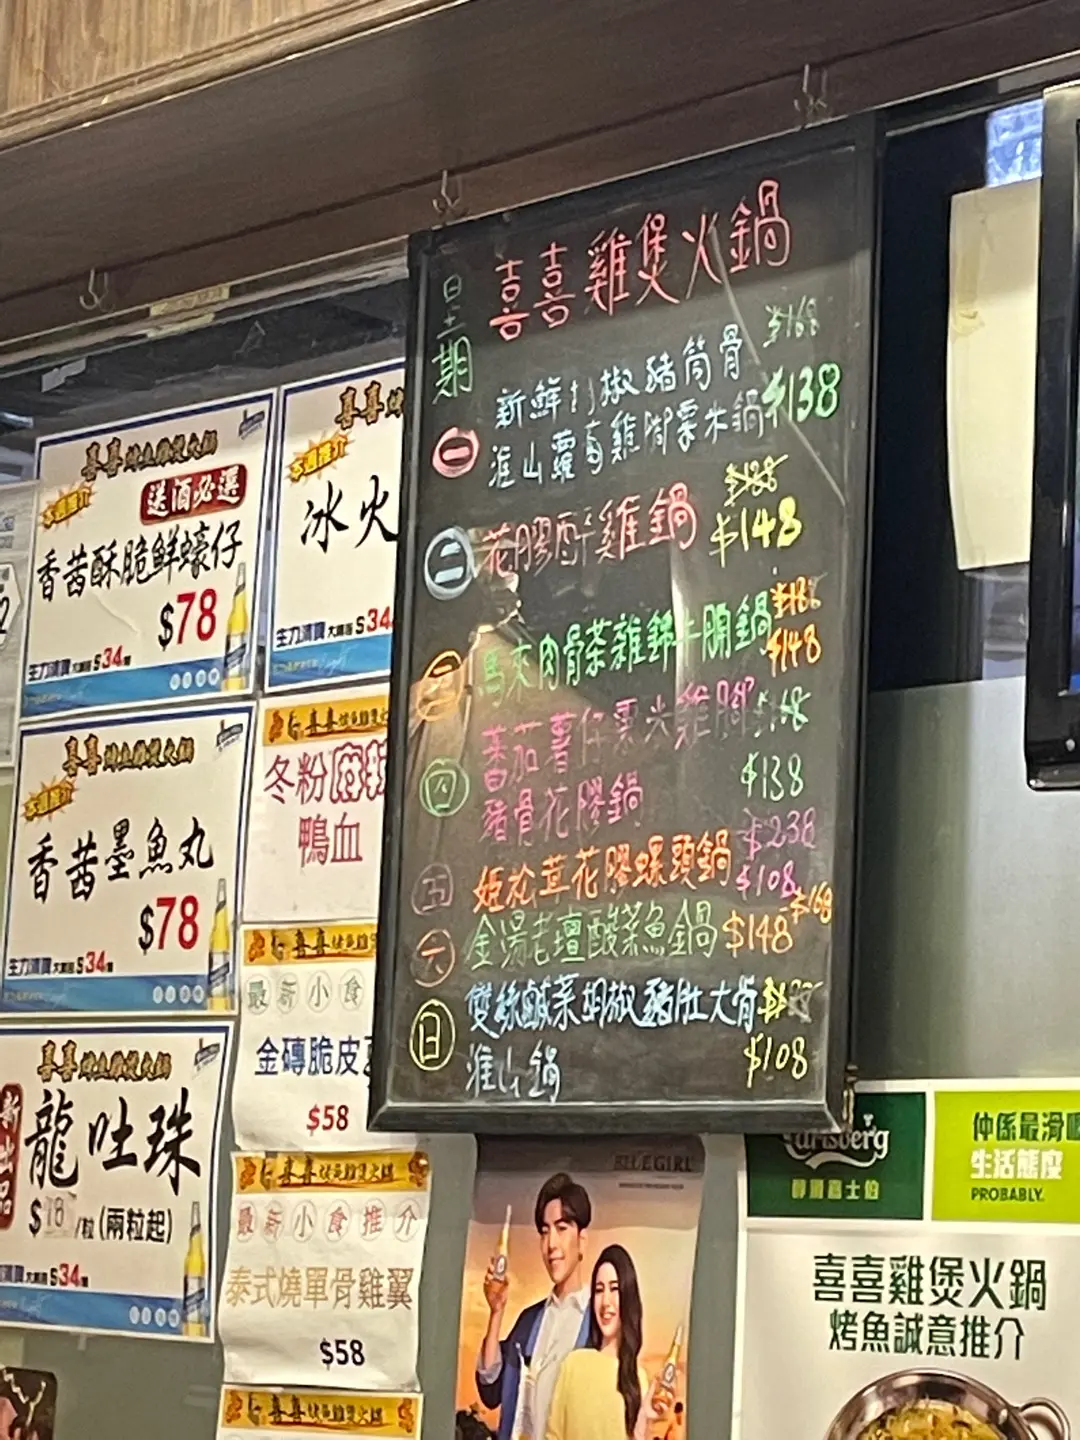 喜喜雞煲火鍋
星期
一
新鮮 椒豬筒骨 $168
淮山 雞腳粟米鍋 $138
二
花膠 雞鍋 $188 $148
三
馬來肉骨茶雜錦牛腩鍋 $148
四
蕃茄薯仔粟米雞腳 $168
豬骨花膠鍋 $138
五
姬松茸花膠螺頭鍋 $238
$108
六
金湯老壇酸菜魚鍋 $148 $168
日
雙絲鹹菜胡椒豬肚大骨
淮山鍋 $108
喜喜烤魚雞煲火鍋
本週推介
送酒必選
香茜酥脆鮮蠔仔
$78
生力清啤 大樽裝 $34
喜喜
本週推介
冰火
生力清啤 大樽裝 $34
喜喜烤魚雞煲火鍋
本週推介
香茜墨魚丸
$78
生力清啤 大樽裝 $34
喜喜烤魚雞煲火鍋
新出品
龍吐珠
$18/粒(兩粒起)
大樽裝 $34
喜喜
冬粉麻辣
鴨血
喜喜
最新小食
金磚脆皮
$58
喜喜烤魚雞煲火鍋
最新小食推介
泰式燒單骨雞翼
$58
喜喜烤魚雞煲火鍋
BLUE GIRL
Carlsberg
仲係最滑
生活態度
PROBABLY.
喜喜雞煲火鍋
烤魚誠意推介